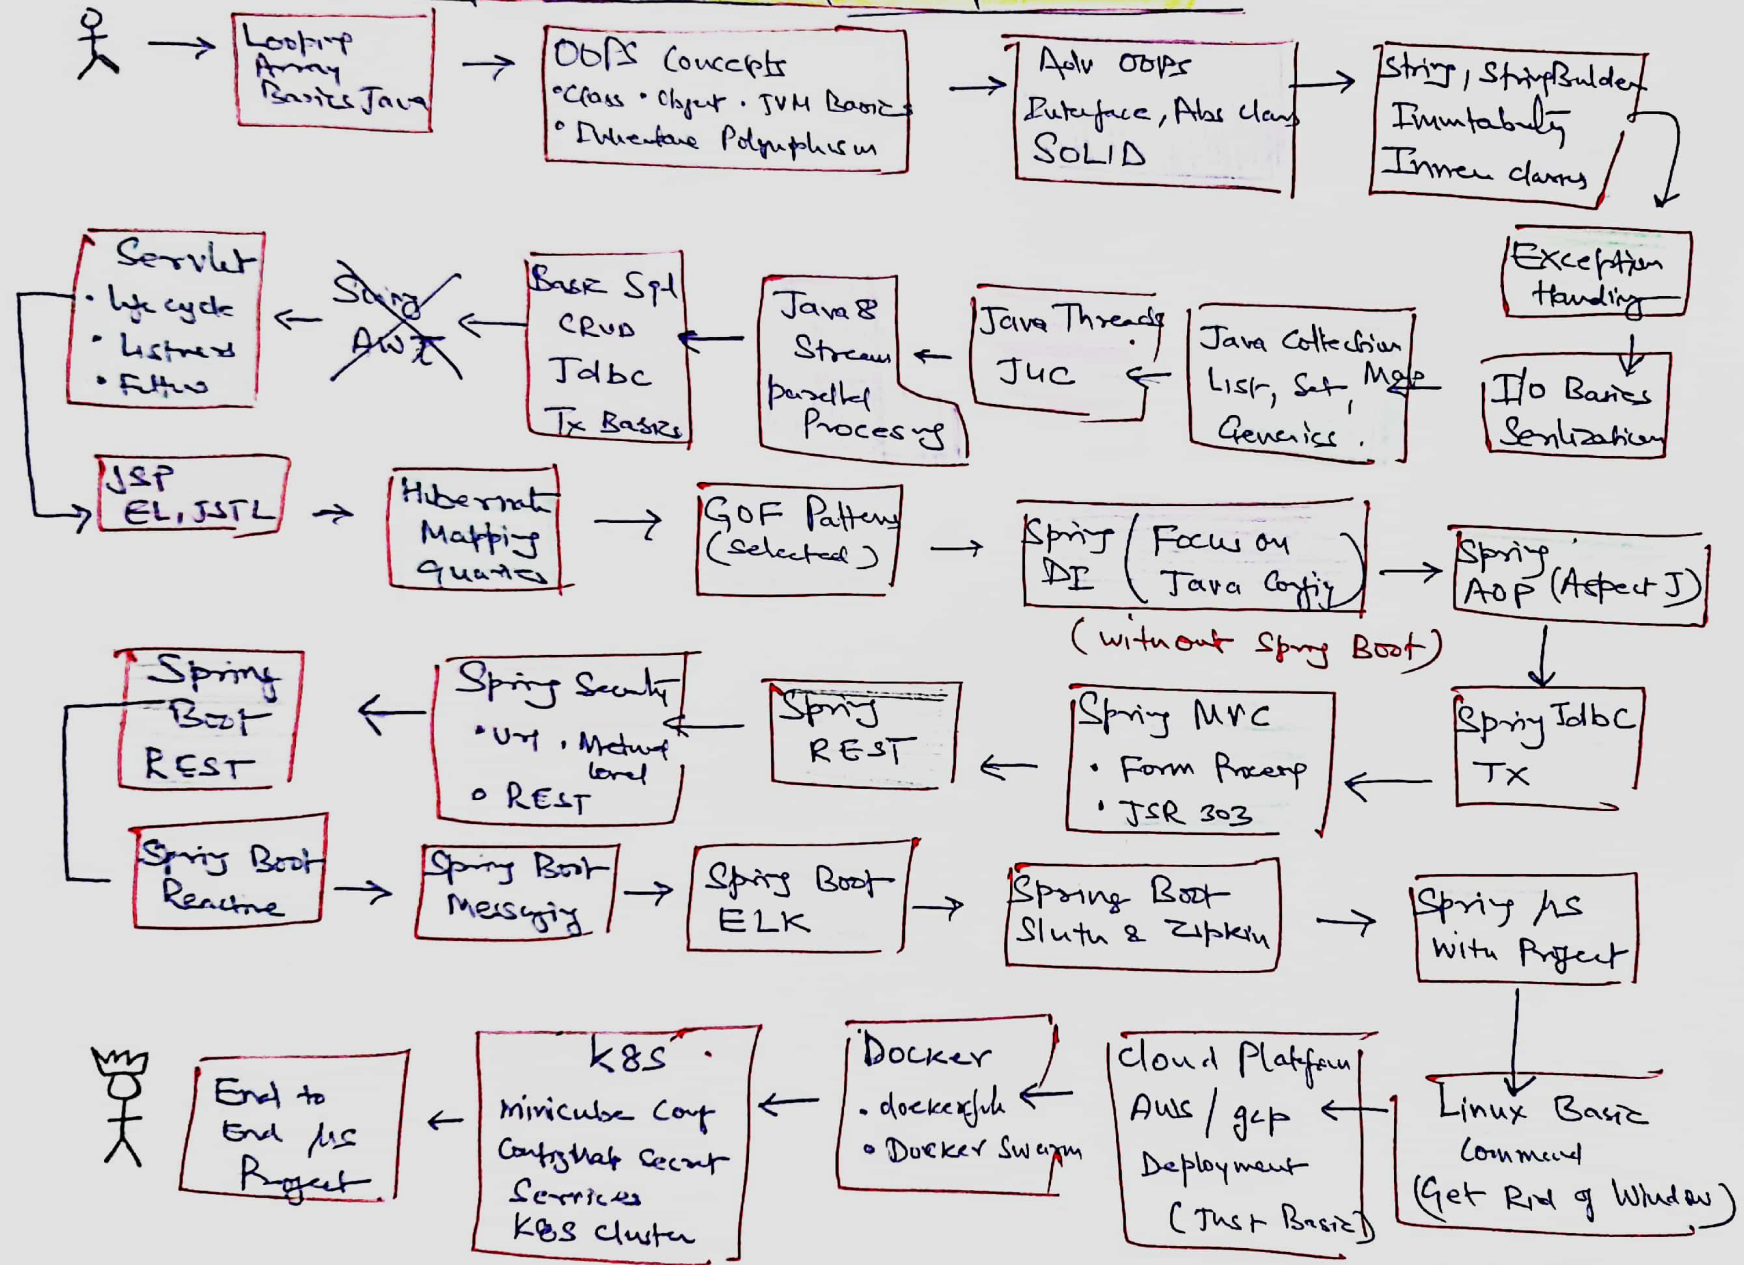 Looping
Array
Basics Java
OOPS Concepts
• Class • Object • JVM Basics
• Inheritane Polymphism
Adv OOPS
Interface, Abs class
SOLID
String, StringBulder
Immtabulity
Inner classes
Exception
Handling
I/O Basics
Serilization
Java Collection
List, Set, Map
Generics.
Java Threads
JUC
Java 8
Stream
parallel
Procesing
Basic Sql
CRUD
Jdbc
Tx Basics
Swing
AWT
Servlet
• life cycle
• Listners
• Filters
JSP
EL, JSTL
Hibernate
Mapping
Quaries
GOF Patterns
(selected)
Spring
DI
(Focus on
Java Config)
(without Spring Boot)
Spring
AOP (Aspect J)
Spring Jdbc
TX
Spring MVC
• Form Process
• JSR 303
Spring
REST
Spring Security
• Url • Method
level
• REST
Spring
Boot
REST
Spring Boot
Reactive
Spring Boot
Messaging
Spring Boot
ELK
Spring Boot
Sluth & Zipkin
Spring µs
with Project
Linux Basic
Command
(Get Rid of Window)
Cloud Platform
AWS / gcp
Deployment
(Just Basic)
Docker
• dockerfile
• Docker Swarm
K8S
Minicube Conf
ConfigMap Secret
Services
K8S Cluster
End to
End µs
Project